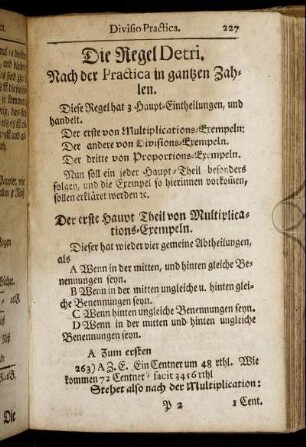 Divisio Practica. 227
Die Regel Detri.
Nach der Practica in gantzen Zah-
len.
Diese Regel hat 3 Haupt-Eintheilungen, und
handelt.
Der erste von Multiplications-Exempeln:
Der andere von Divisions-Exempeln.
Der dritte von Proportions-Exempeln.
Nun soll ein jeder Haupt-Theil besonders
folgen, und die Exempel so hierinnen vorkom̃en,
sollen erkläret werden ꝛc.
Der erste Haupt Theil von Multiplica-
tions-Exempeln.
Dieser hat wieder vier gemeine Abtheilungen,
als
A Wenn in der mitten, und hinten gleiche Be-
nennungen seyn.
B Wenn in der mitten ungleiche u. hinten glei-
che Benennungen seyn.
C Wenn hinten ungleiche Benennungen seyn.
D Wenn in der mitten und hinten ungleiche
Benennungen seyn.
A Zum ersten
263) A. Z. E. Ein Centner um 48 rthl. Wie
kommen 72 Centner? facit 3456 rthl
Stehet also nach der Multiplication:
P 2 1 Cent.
Die